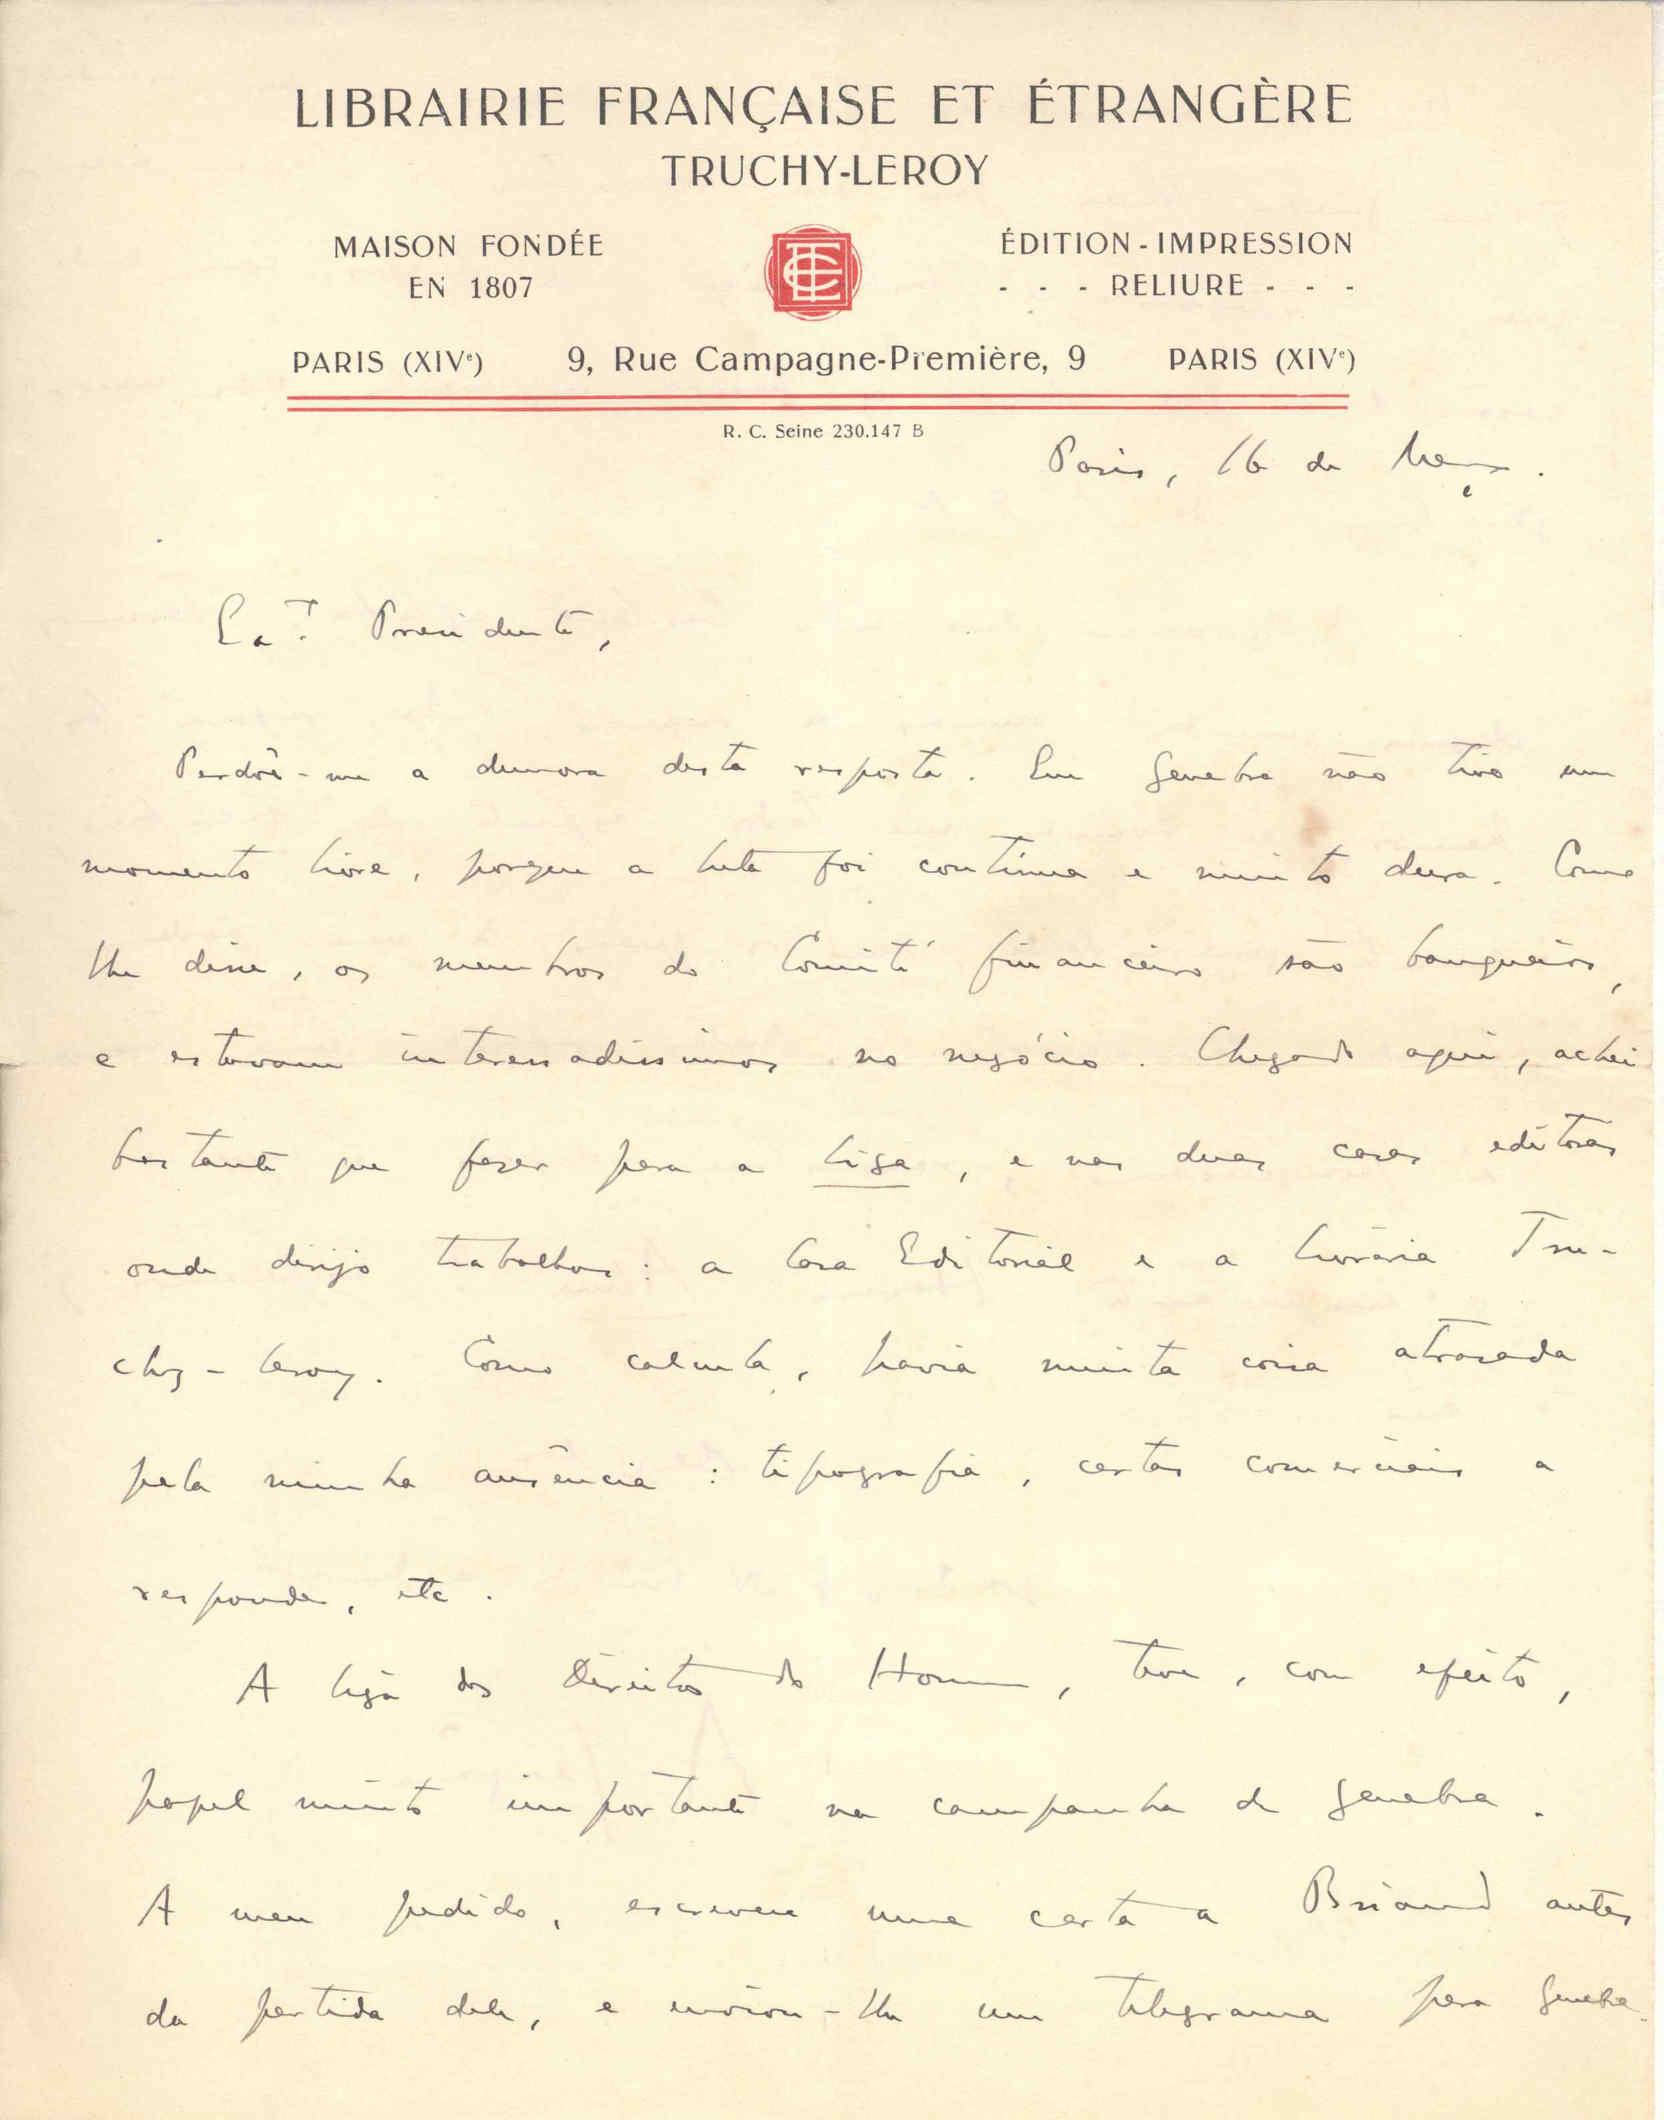 LIBRAIRIE FRANÇAISE ET ÉTRANGÈRE
TRUCHY-LEROY
MAISON FONDÉE
EN 1807
ÉDITION - IMPRESSION
- - - RELIURE - - -
PARIS (XIVe) 9, Rue Campagne-Première, 9 PARIS (XIVe)
R. C. Seine 230.147 B
Paris, 16 de Março.
Presidente,
Perdôe-me a demora desta resposta. Em Genebra não tive um
momento livre, porque a luta foi contínua e muito dura. Como
lhe disse, os membros do Comité financeiro são banqueiros,
e estavam interessadíssimos no negócio. Chegado aqui, achei
bastante que fazer para a Liga, e nas duas casas editoras
onde dirijo trabalhos: a Casa Editorial e a Livraria Tru-
chy-Leroy. Como calcula, havia muita coisa atrasada
pela minha ausência: tipografia, cartas comerciais a
responder, etc.
A Liga dos Direitos do Homem, teve, com efeito,
papel muito importante na campanha de Genebra.
A meu pedido, escreveu uma carta a Briand antes
da partida dele, e enviou-lhe um telegrama para Genebra.